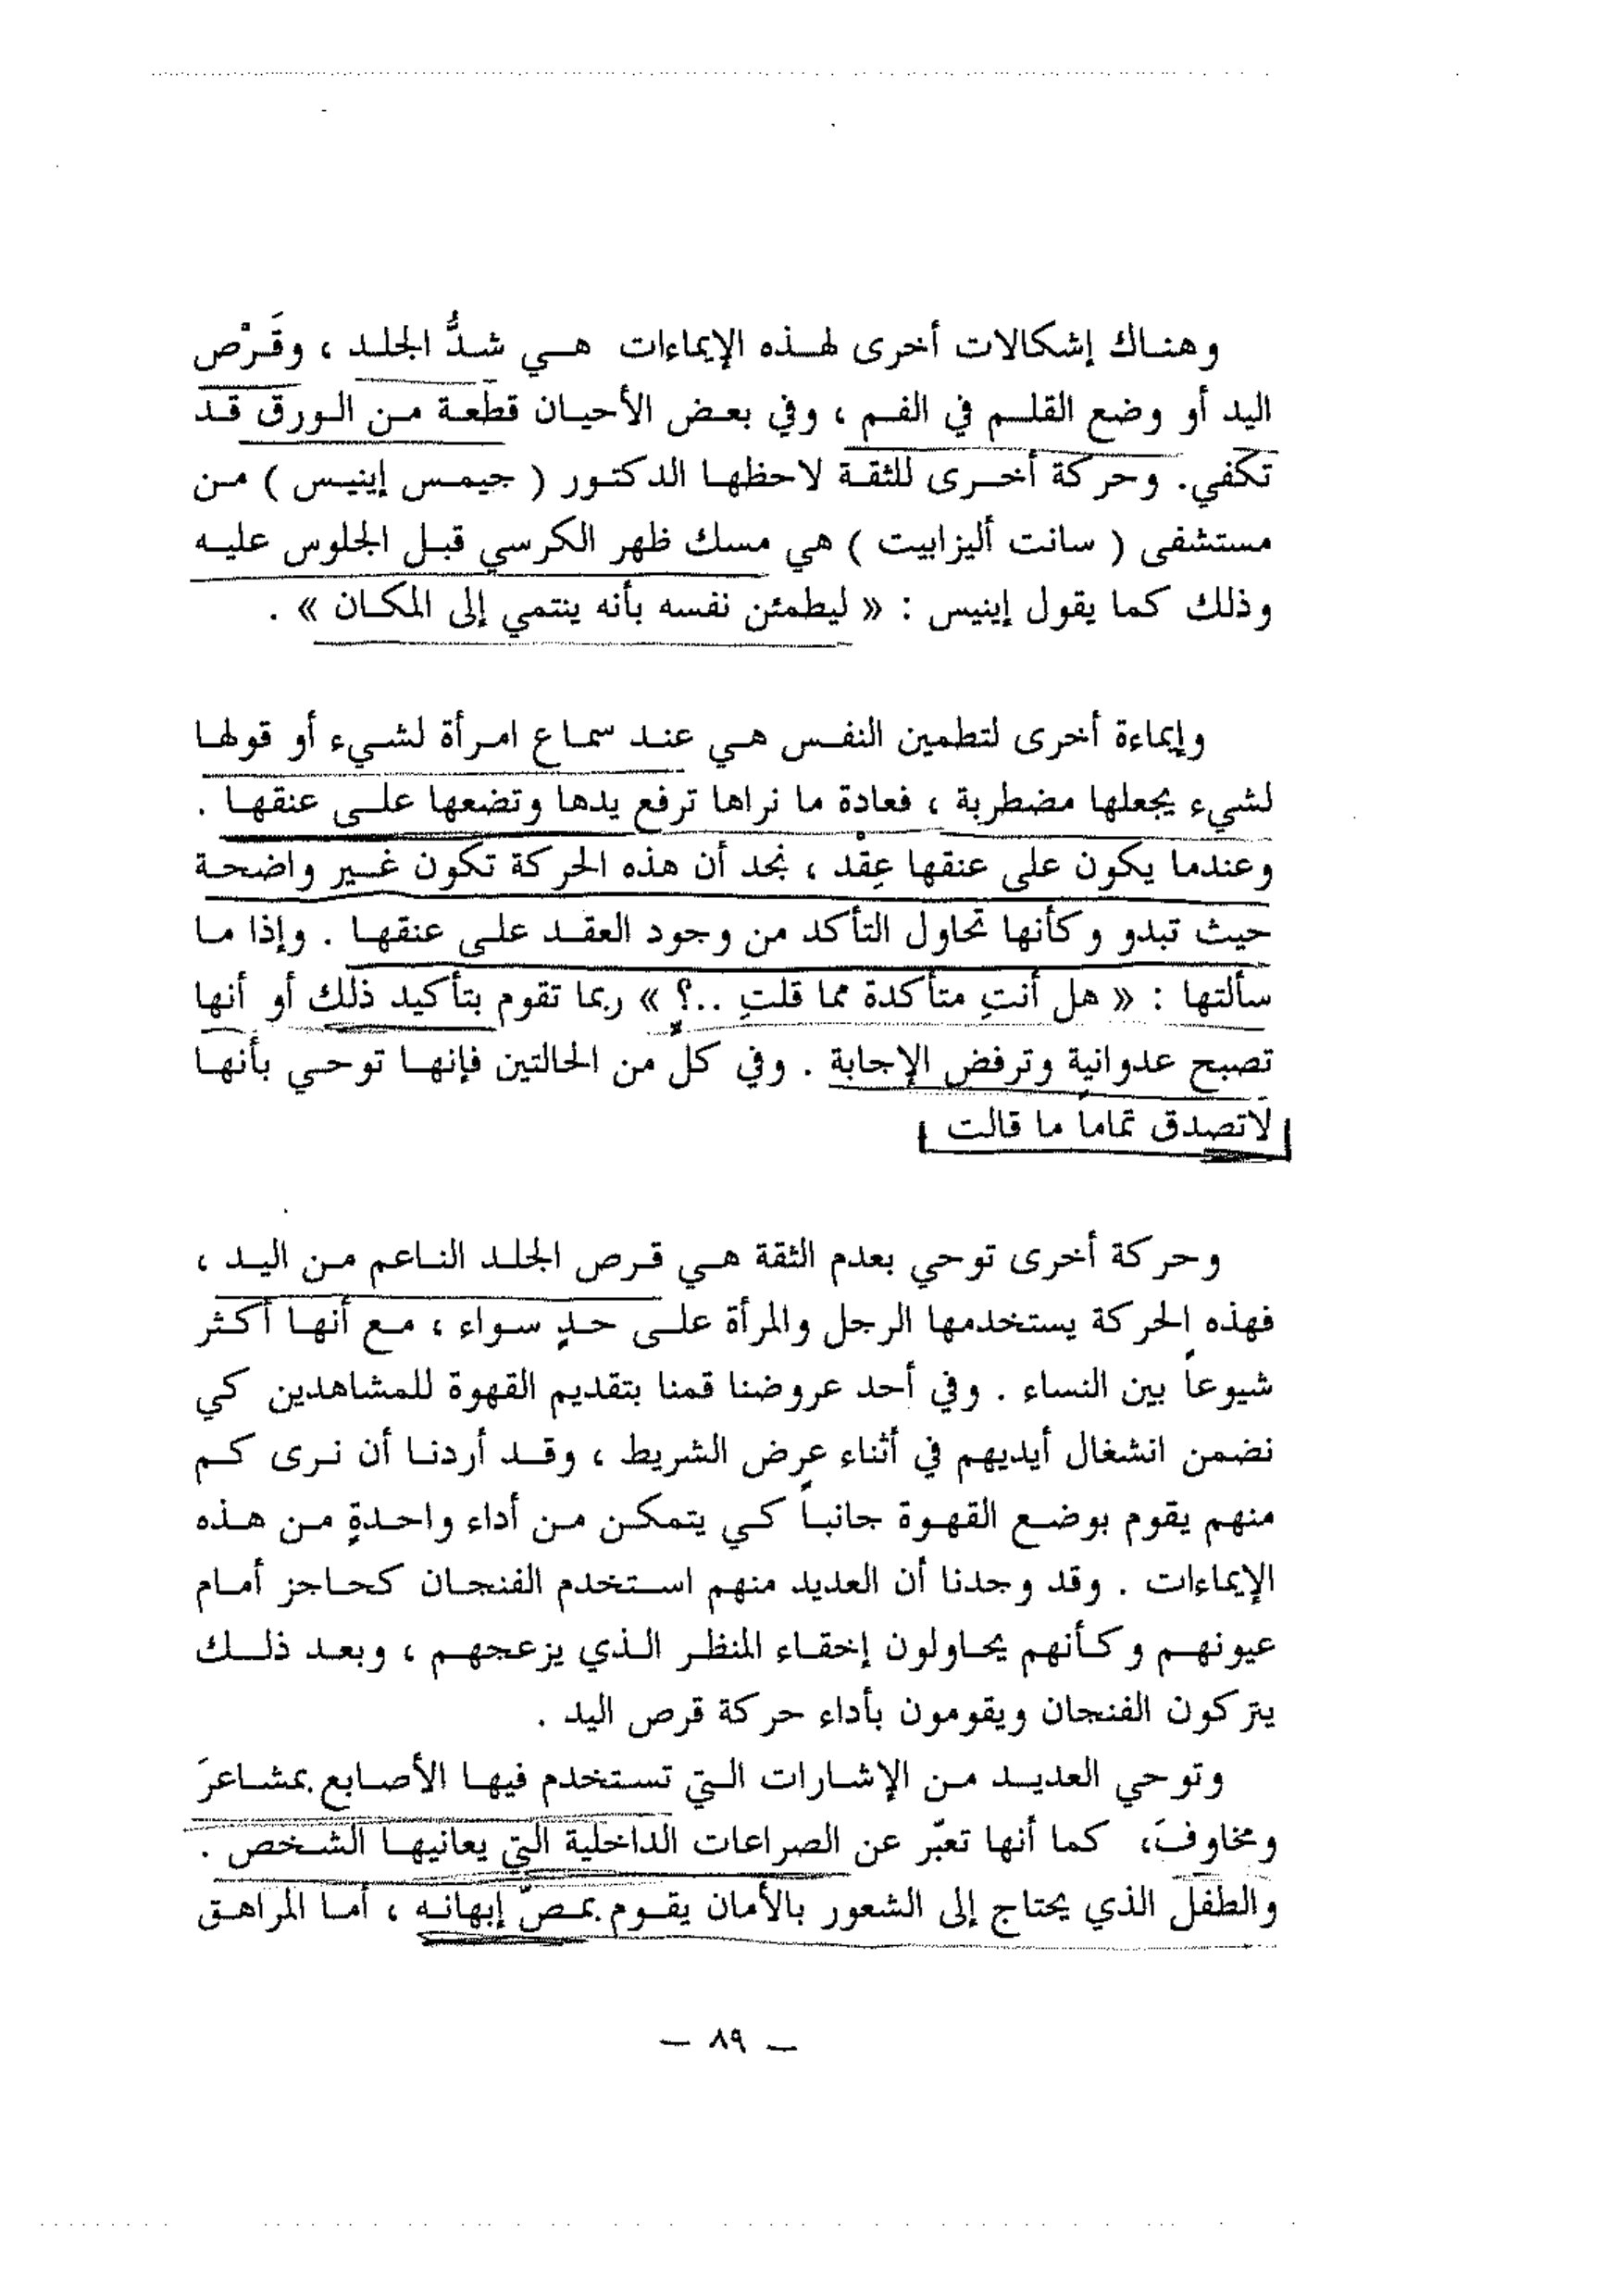 وهناك إشكالات أخرى لهذه الإيماءات هي شدُّ الجلد ، وقَرْص
اليد أو وضع القلم في الفم ، وفي بعض الأحيان قطعة من الورق قد
تكفي. وحركة أخرى للثقة لاحظها الدكتور ( جيمس إينيس ) من
مستشفى ( سانت أليزابيت ) هي مسك ظهر الكرسي قبل الجلوس عليه
وذلك كما يقول إينيس : « ليطمئن نفسه بأنه ينتمي إلى المكان » .
وإيماءة أخرى لتطمين النفس هي عند سماع امرأة لشيء أو قولها
لشيء يجعلها مضطربة ، فعادة ما نراها ترفع يدها وتضعها على عنقها .
وعندما يكون على عنقها عِقْد ، نجد أن هذه الحركة تكون غير واضحة
حيث تبدو وكأنها تحاول التأكد من وجود العقد على عنقها . وإذا ما
سألتها : « هل أنتِ متأكدة مما قلتِ ..؟ » ربما تقوم بتأكيد ذلك أو أنها
تصبح عدوانية وترفض الإجابة . وفي كلٍّ من الحالتين فإنها توحي بأنها
لاتصدق تماماً ما قالت
وحركة أخرى توحي بعدم الثقة هي قرص الجلد الناعم من اليد ،
فهذه الحركة يستخدمها الرجل والمرأة على حدٍ سواء ، مع أنها أكثر
شيوعاً بين النساء . وفي أحد عروضنا قمنا بتقديم القهوة للمشاهدين كي
نضمن انشغال أيديهم في أثناء عرض الشريط ، وقد أردنا أن نرى كم
منهم يقوم بوضع القهوة جانباً كي يتمكن من أداء واحدةٍ من هذه
الإيماءات . وقد وجدنا أن العديد منهم استخدم الفنجان كحاجز أمام
عيونهم وكأنهم يحاولون إخقاء المنظر الذي يزعجهم ، وبعد ذلك
يتركون الفنجان ويقومون بأداء حركة قرص اليد .
وتوحي العديد من الإشارات التي تستخدم فيها الأصابع بمشاعرَ
ومخاوفَ، كما أنها تعبّر عن الصراعات الداخلية التي يعانيها الشخص .
والطفل الذي يحتاج إلى الشعور بالأمان يقوم بمصّ إبهانه ، أما المراهق
– ٨٩ –